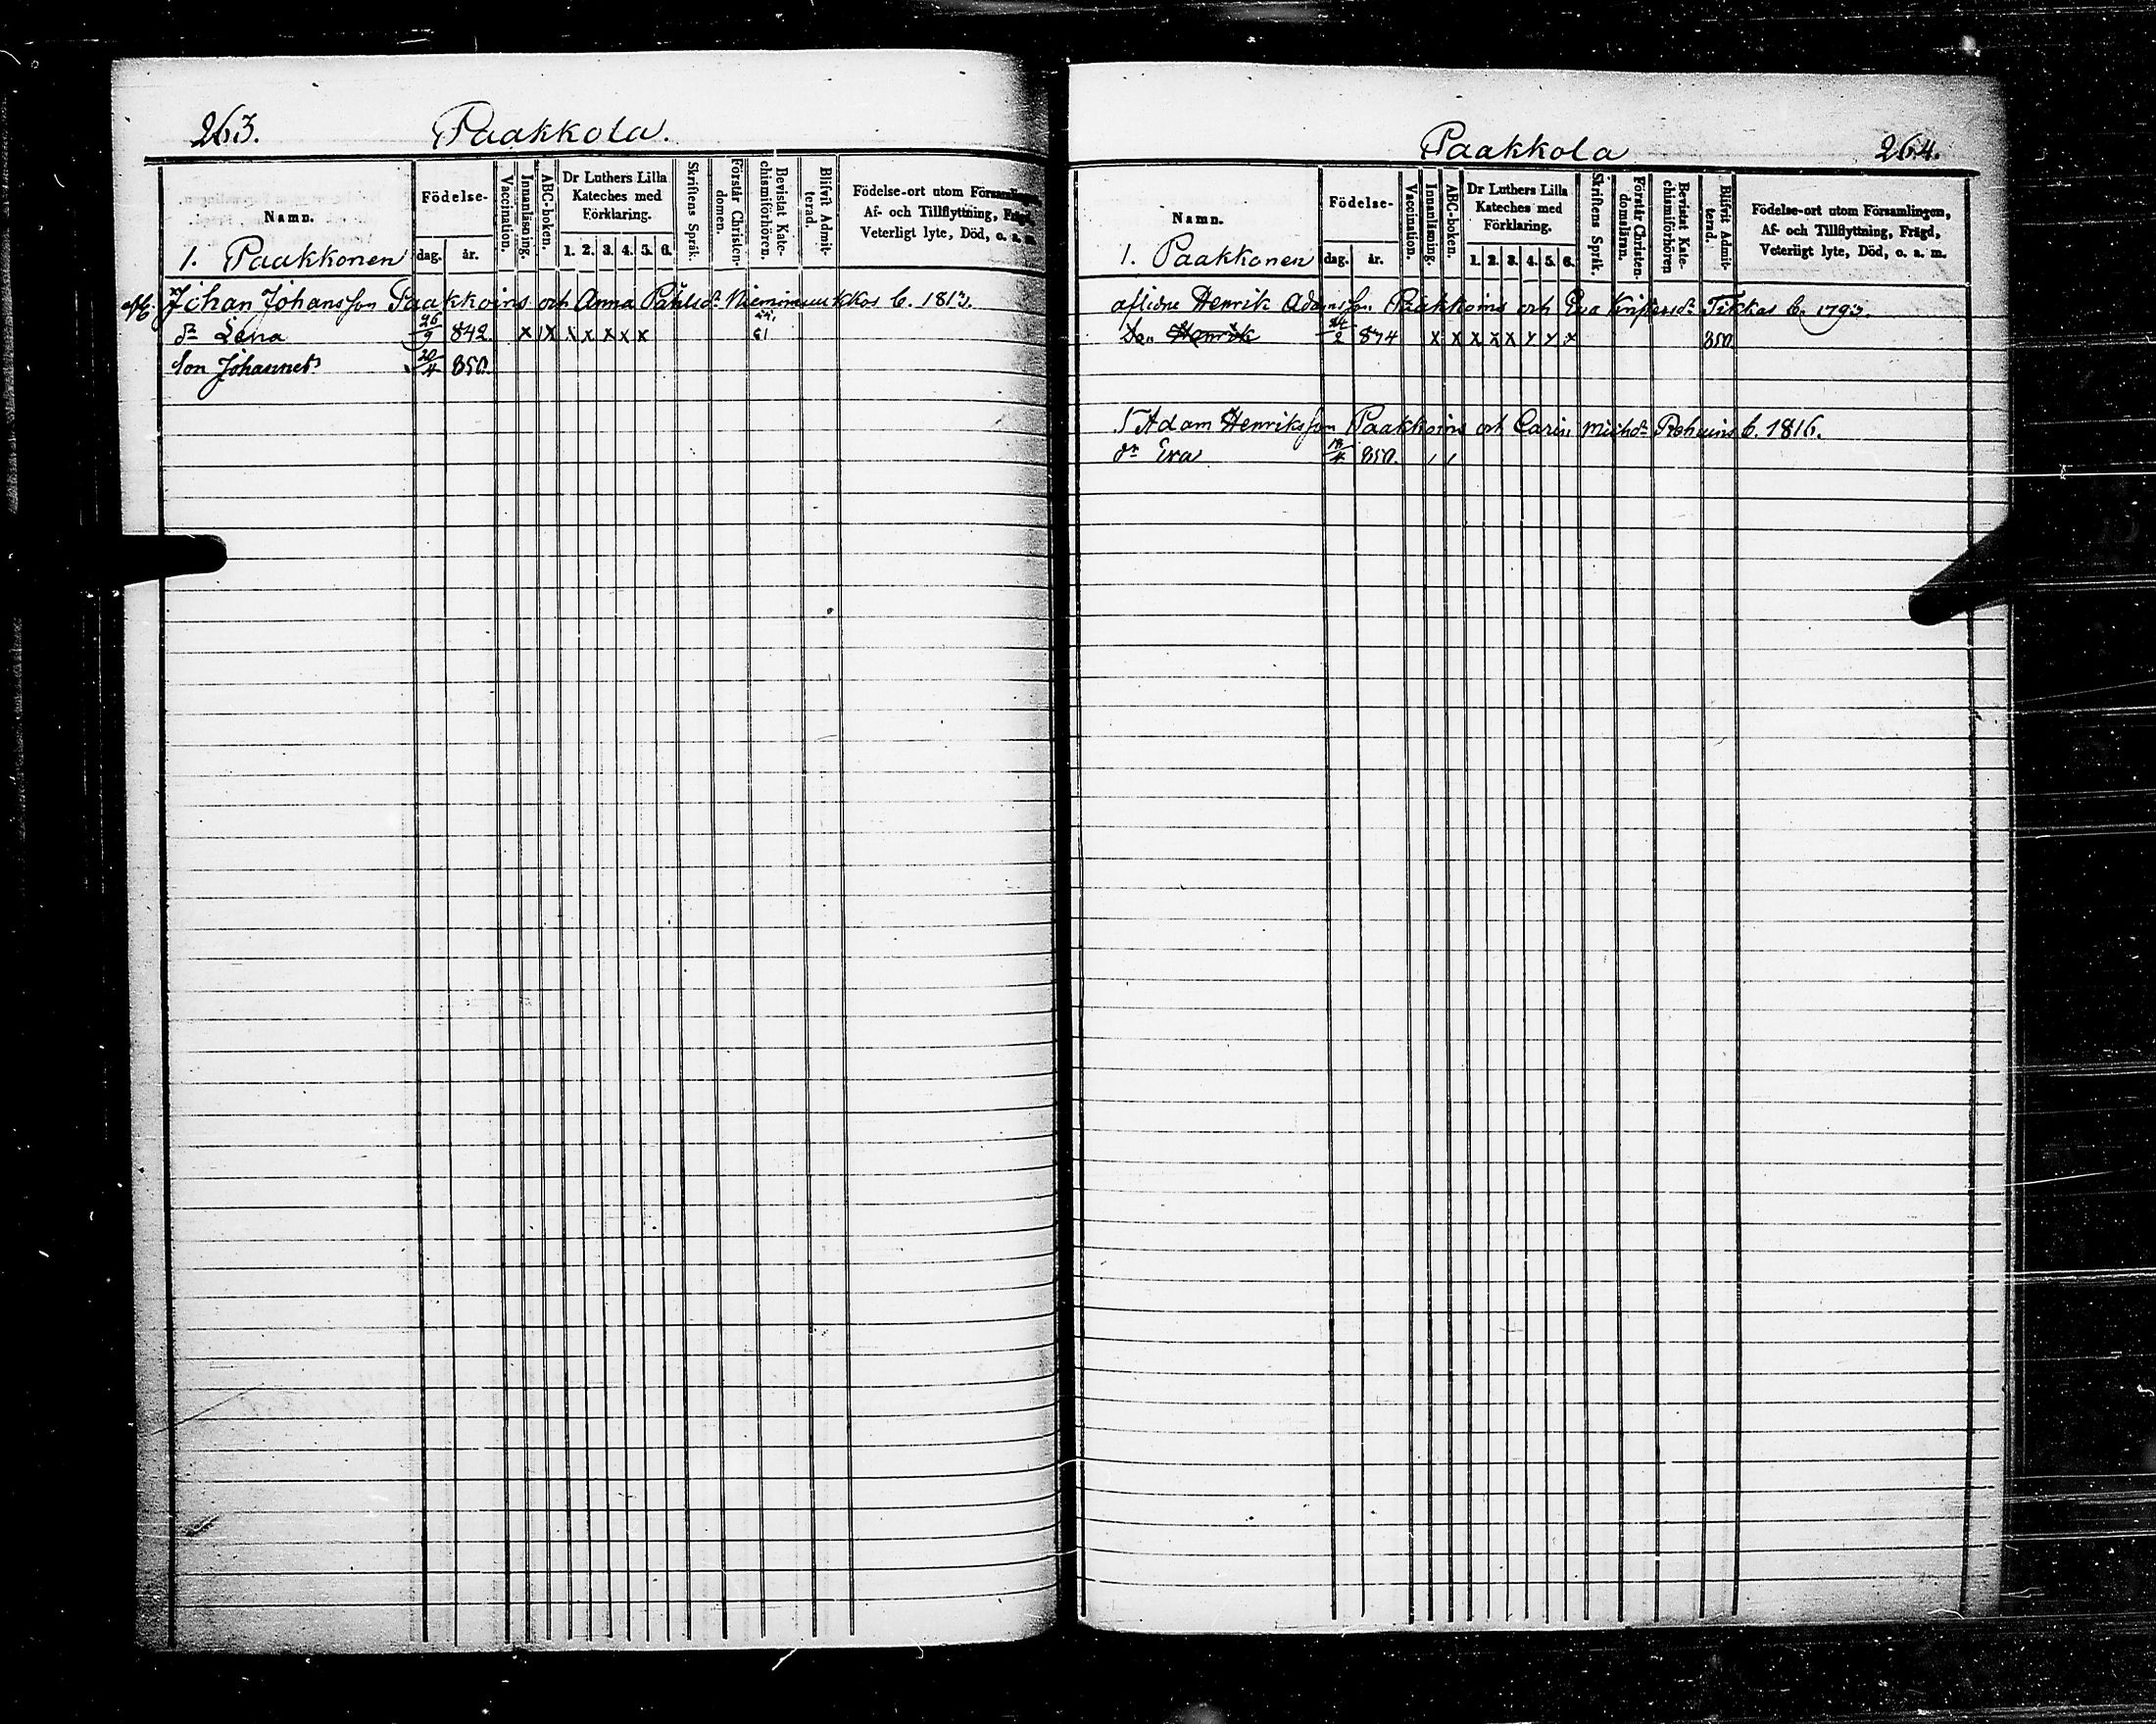 263.
Paakkola.
Namn.
Födelse-
dag.
år.
Vaccination.
Innanläsning.
ABC-boken.
Dr Luthers Lilla
Kateches med
Förklaring.
1. 2. 3. 4. 5. 6.
Skriftens Språk.
Förstår Christen-
domen.
Bevistat Kate-
chismiförhören.
Blifvit Admit-
terad.
Födelse-ort utom Församlingen,
Af- och Tillflyttning, Frägd,
Veterligt lyte, Död, o. a. m.
1. Paakkonen
Johan Johansson Paakkoins och Anna Påhlsdr b. 1813.
dr Lena 26/9 842. x x x x x x x 61
Son Johannes 20/4 850.
Paakkola
264.
Namn.
Födelse-
dag.
år.
Vaccination.
Innanläsning.
ABC-boken.
Dr Luthers Lilla
Kateches med
Förklaring.
1. 2. 3. 4. 5. 6.
Skriftens Språk.
Förstår Christen-
domsläran.
Bevistat Kate-
chismiförhören
Blifvit Admit-
terad.
Födelse-ort utom Församlingen,
Af- och Tillflyttning, Frägd,
Veterligt lyte, Död, o. a. m.
1. Paakkonen
aflidne Henrik Adamsson Paakkoins och Eva Tikkas b. 1793.
Henrik 24/2 x x x x x x x x 850
Adam Henriksson Paakkoins och Carin Michdr b. 1816.
dr Eva 850. / /